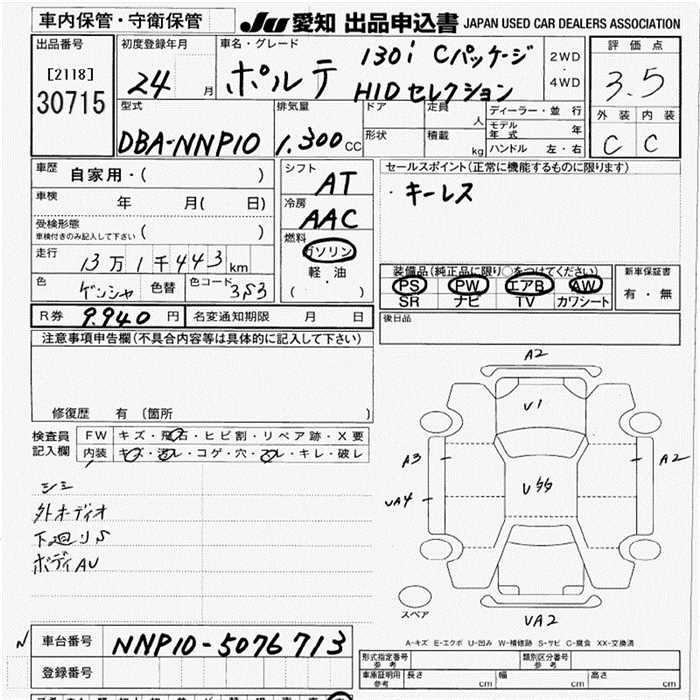 車内保管・守衛保管
JU 愛知 出品申込書 JAPAN USED CAR DEALERS ASSOCIATION
出品番号
[2118]
30715
初度登録年月
24 月
車名・グレード
ポルテ
130i Cパッケージ
HIDセレクション
2WD
・
4WD
評価点
3.5
外装 内装
C C
型式
DBA-NNP10
排気量
1.300 CC
ドア
形状
定員 人
積載 kg
ディーラー・並行
モデル年式 年
ハンドル 左・右
車歴 自家用・( )
車検 年 月( 日)
受検形態
車検付きのみ記入して下さい ( )
走行 13万1千443km
色 ゲンシャ 色替 色コード 3P3
シフト
AT
冷房
AAC
燃料
ガソリン
軽・油
( ・ )
セールスポイント(正常に機能するものに限ります)
・キーレス
装備品(純正品に限り○をつけてください)
PS PW エアB AW
SR ナビ TV カワシート
新車保証書
有・無
R券 9.940 円 名変通知期限 月 日
後日品
注意事項申告欄(不具合内容等は具体的に記入して下さい)
修復歴 有 (箇所 )
検査員
記入欄
FW キズ・飛石・ヒビ割・リペア跡・X要
内装 キズ・汚レ・コゲ・穴・スレ・キレ・破レ
シミ
外オーディオ
下廻りS
ボディAU
A2
V1
A3
A2
UA4
U
スペア
VA2
A-キズ E-エクボ U-凹み W-補修跡 S-サビ C-腐食 XX-交換済
N
車台番号 NNP10-5076713
登録番号
形式指定番号
参考
類別区分番号
参考
車庫証明用
参考
長さ cm 幅 cm 高さ cm